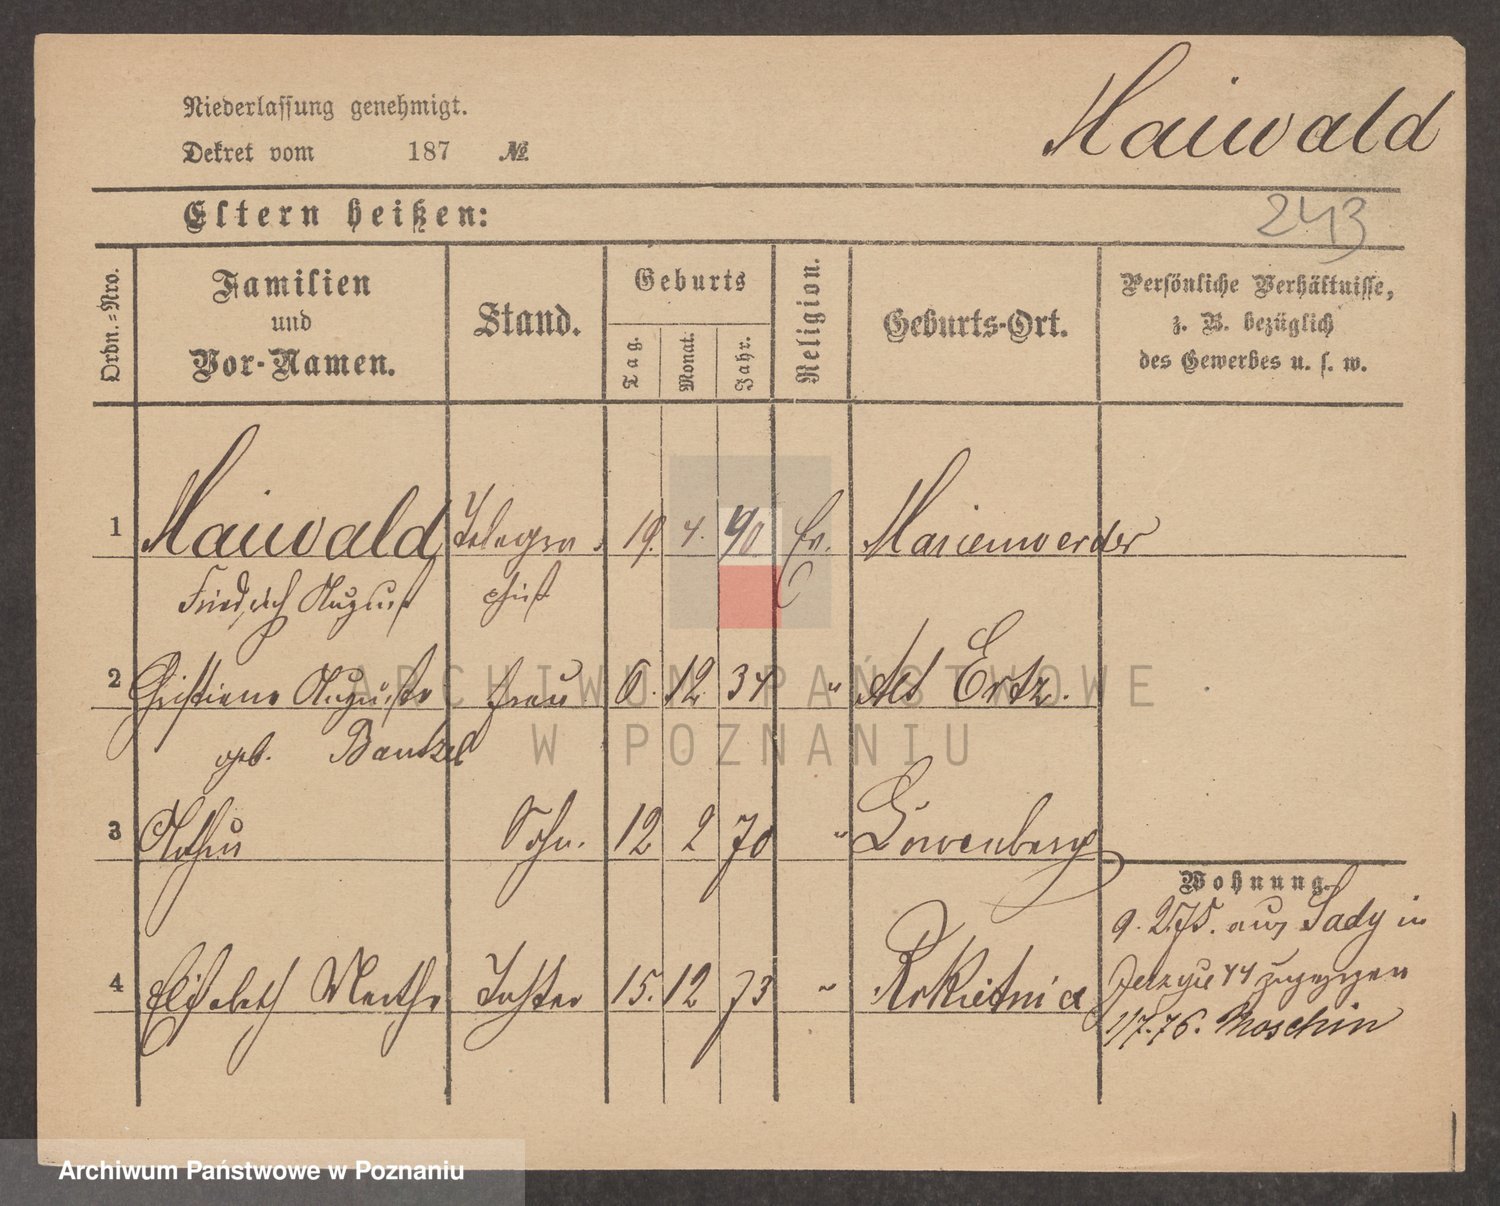 Niederlassung genehmigt.
Maiwald
Dekret vom 187 №
Eltern heißen:
243
Ordn.=Nro.
Familien
und
Vor-Namen.
Stand.
Geburts
Tag.
Monat.
Jahr.
Religion.
Geburts-Ort.
Persönliche Verhältnisse,
z. B. bezüglich
des Gewerbes u. s. w.
1 Maiwald, Telegra- 19. 4. Ev. Marienwerder
Friedrich August phist
2 Christiane Auguste Frau 6. 12. 34 " Alt
geb.
3 Arthur Sohn. 12 2 70 " Löwenberg
Wohnung.
9. 2. 75. aus Sady in
4 Elisabeth Martha Tochter 15. 12 73 " Rokietnica
44 zugezogen
1/7. 76. Moschin
ARCHIWUM PAŃSTWOWE
W POZNANIU
Archiwum Państwowe w Poznaniu